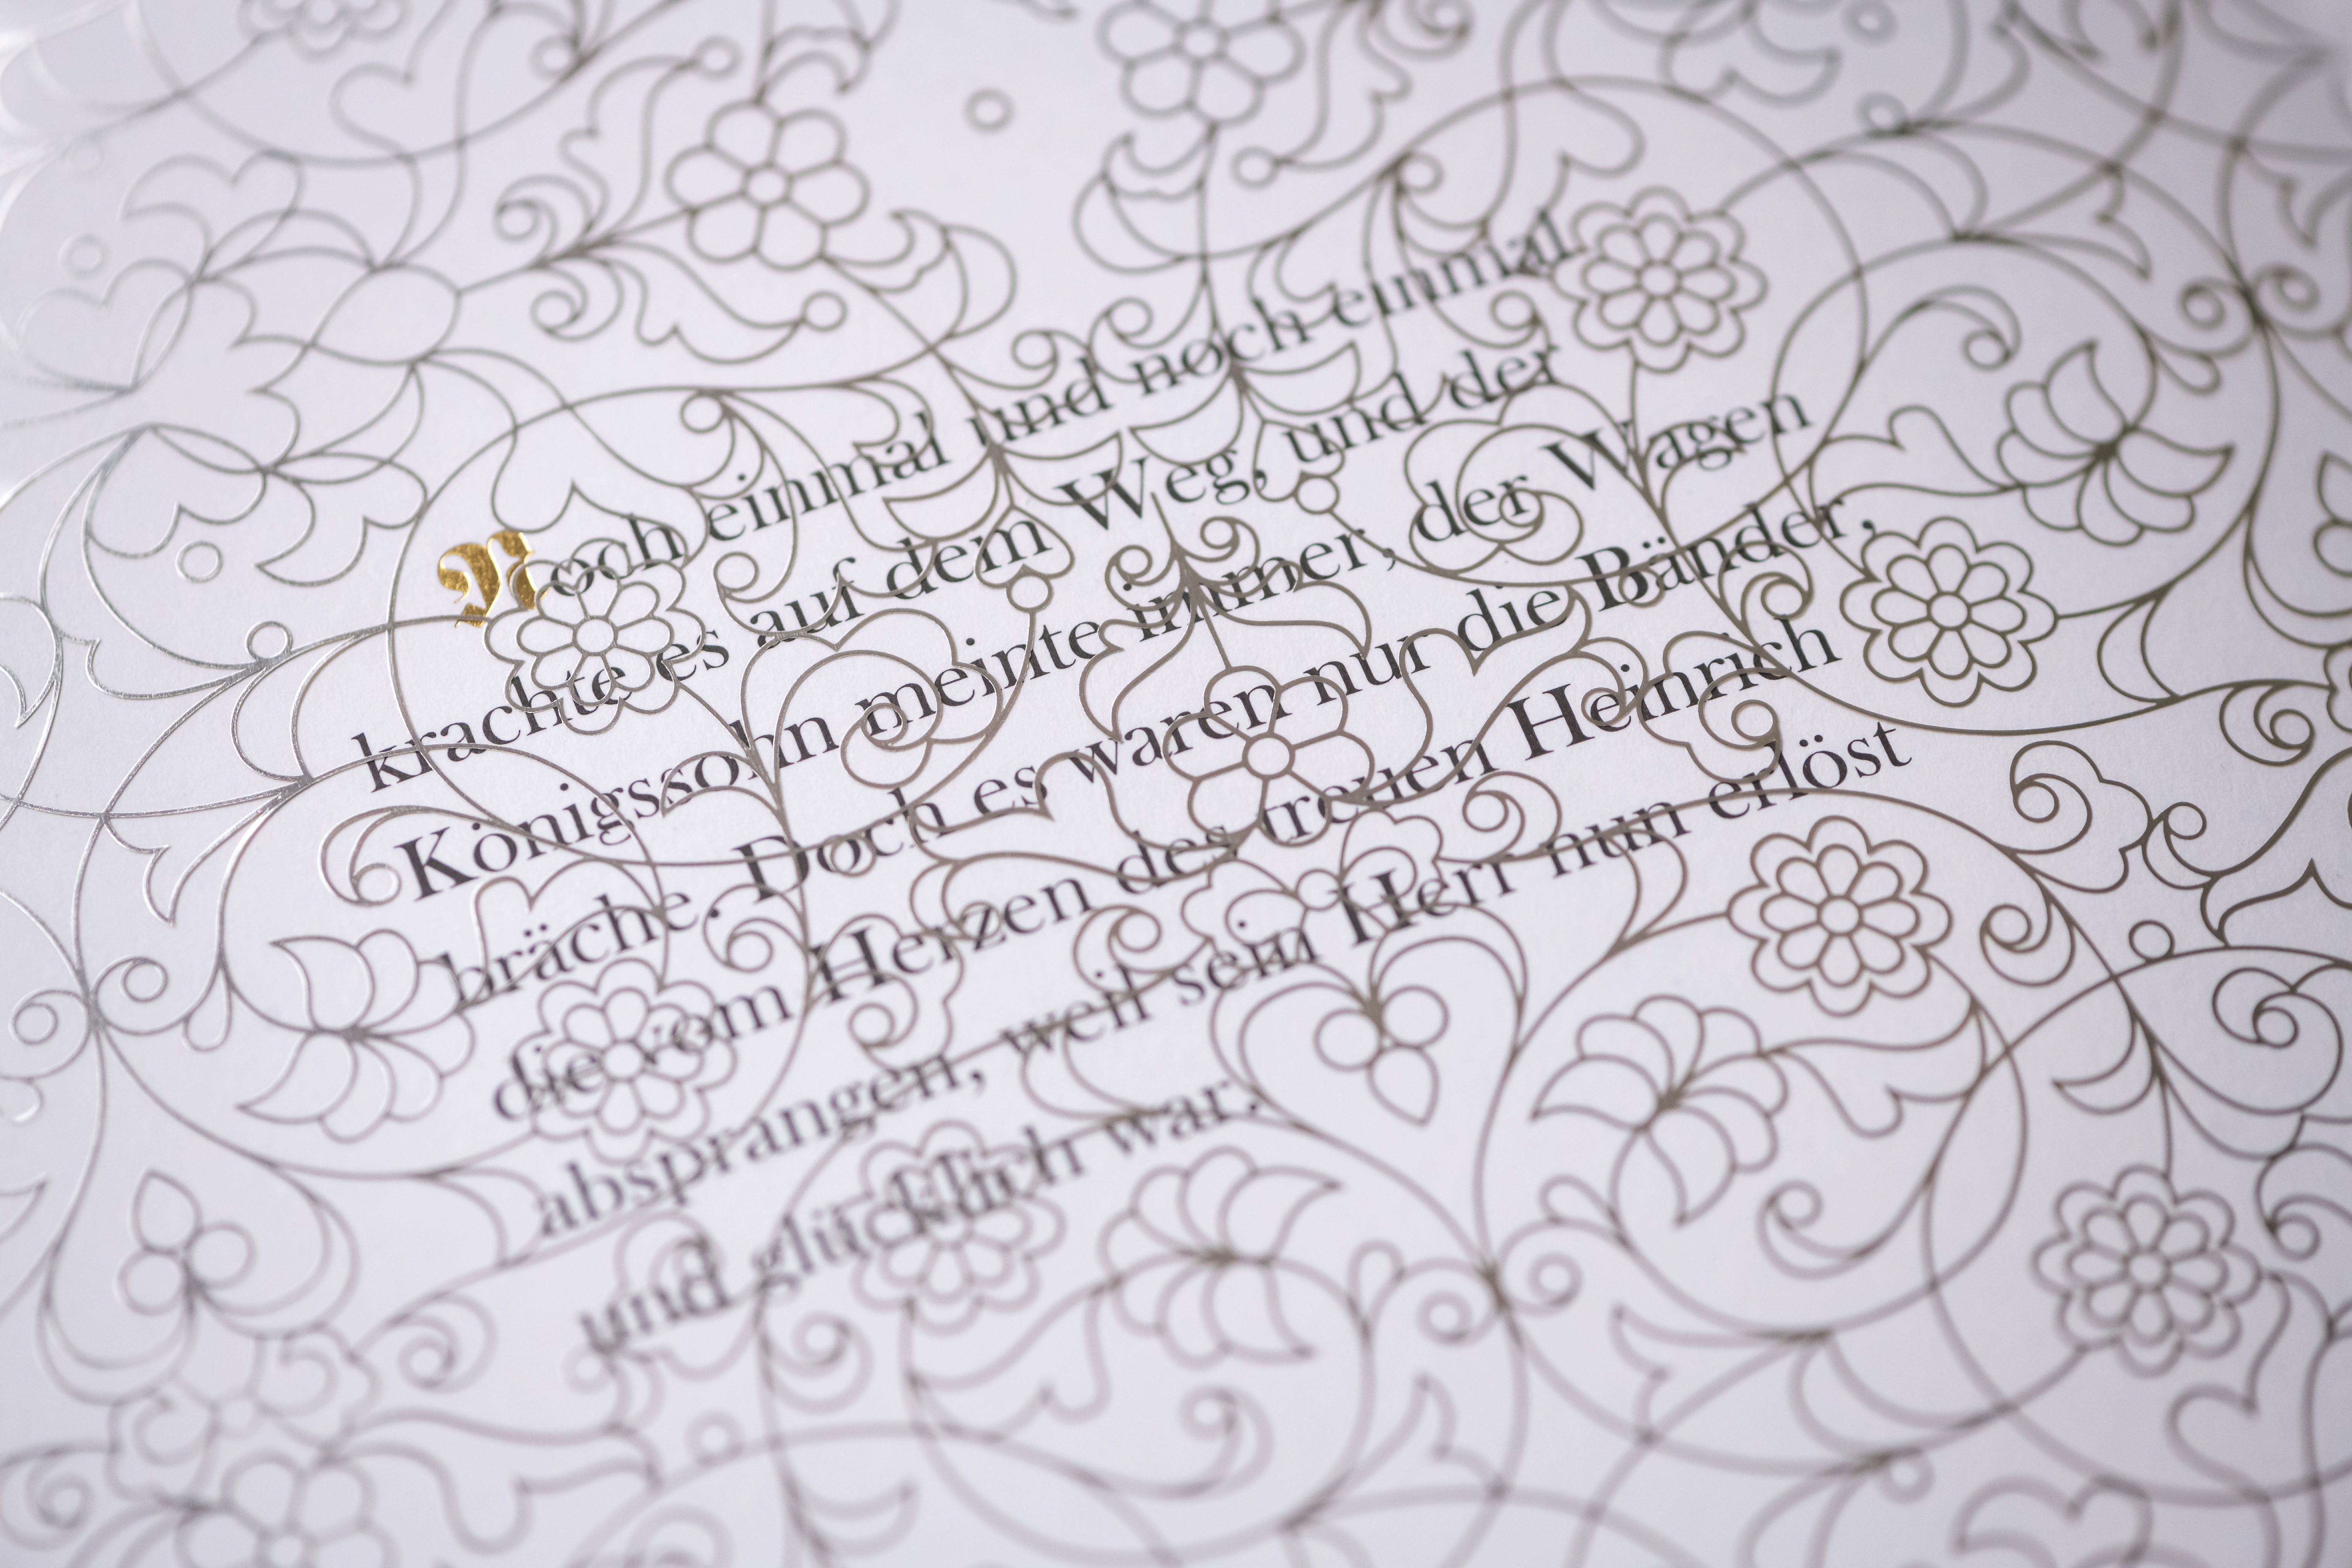 Noch einmal und noch einmal
krachte es auf dem Weg, und der
Königssohn meinte immer, der Wagen
bräche. Doch es waren nur die Bänder,
die vom Herzen des treuen Heinrich
absprangen, weil sein Herr nun erlöst
und glücklich war.